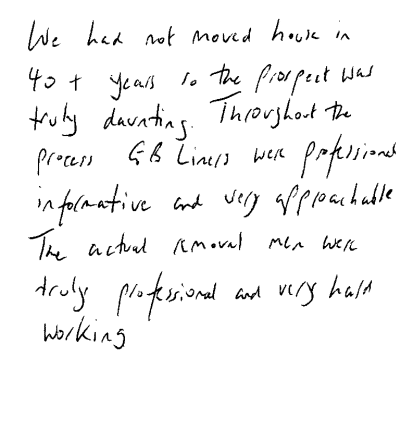 We had not moved house in
40 + years so the prospect was
truly daunting. Throughout the
process GB Liners were professional
informative and very approachable
The actual removal men were
truly professional and very hard
working